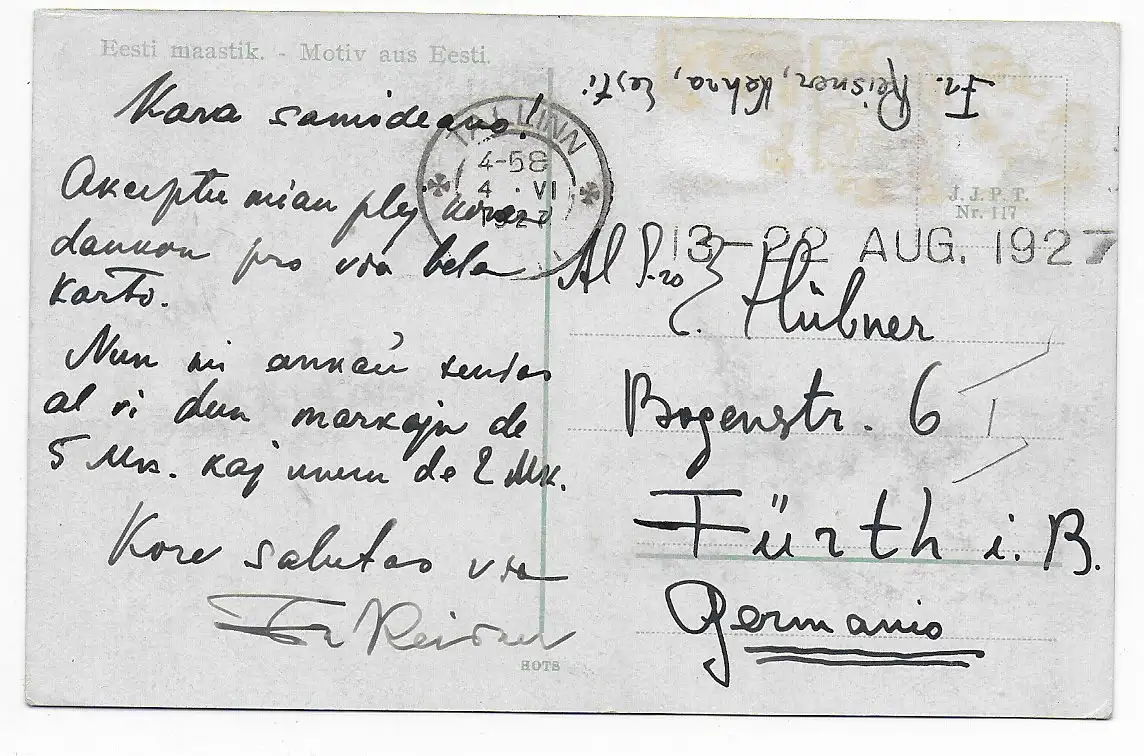 Eesti maastik. - Motiv aus Eesti.
Fr. Reisner, Kehra, Eesti
J. J. P. T.
Nr. 117
TALLINN
4-58
4 · VI
1927
13-22 AUG. 1927
Kara samideano!
Akceptu mian plej koran
dankon pro via bela
karto.
Nun mi ankaŭ sendas
al vi dun markojn de
5 Mk. kaj unun de 2 Mk.
Kore salutas via
Fr Reisner
Al S-ro
E. Hübner
Bogenstr. 6 I
Fürth i. B.
Germanio
HOTS